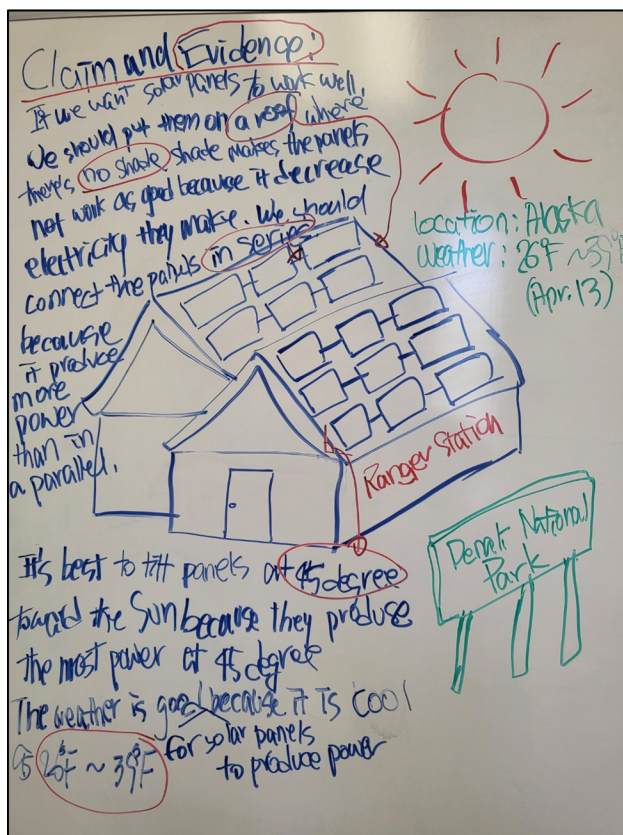 Claim and Evidence:
If we want solar panels to work well,
we should put them on a roof where
there's no shade. shade makes the panels
not work as good because it decrease
electricity they make. We should
connect the panels in series
because
it produce
more
power
than in
a paralled.
location: Alaska
weather: 26°F ~ 39°F
(Apr. 13)
Ranger Station
Denali National
Park
It's best to tilt panels at 45 degree
toward the Sun because they produce
the most power at 45 degree
The weather is good because it is cool
for solar panels
to produce power
26°F ~ 39°F